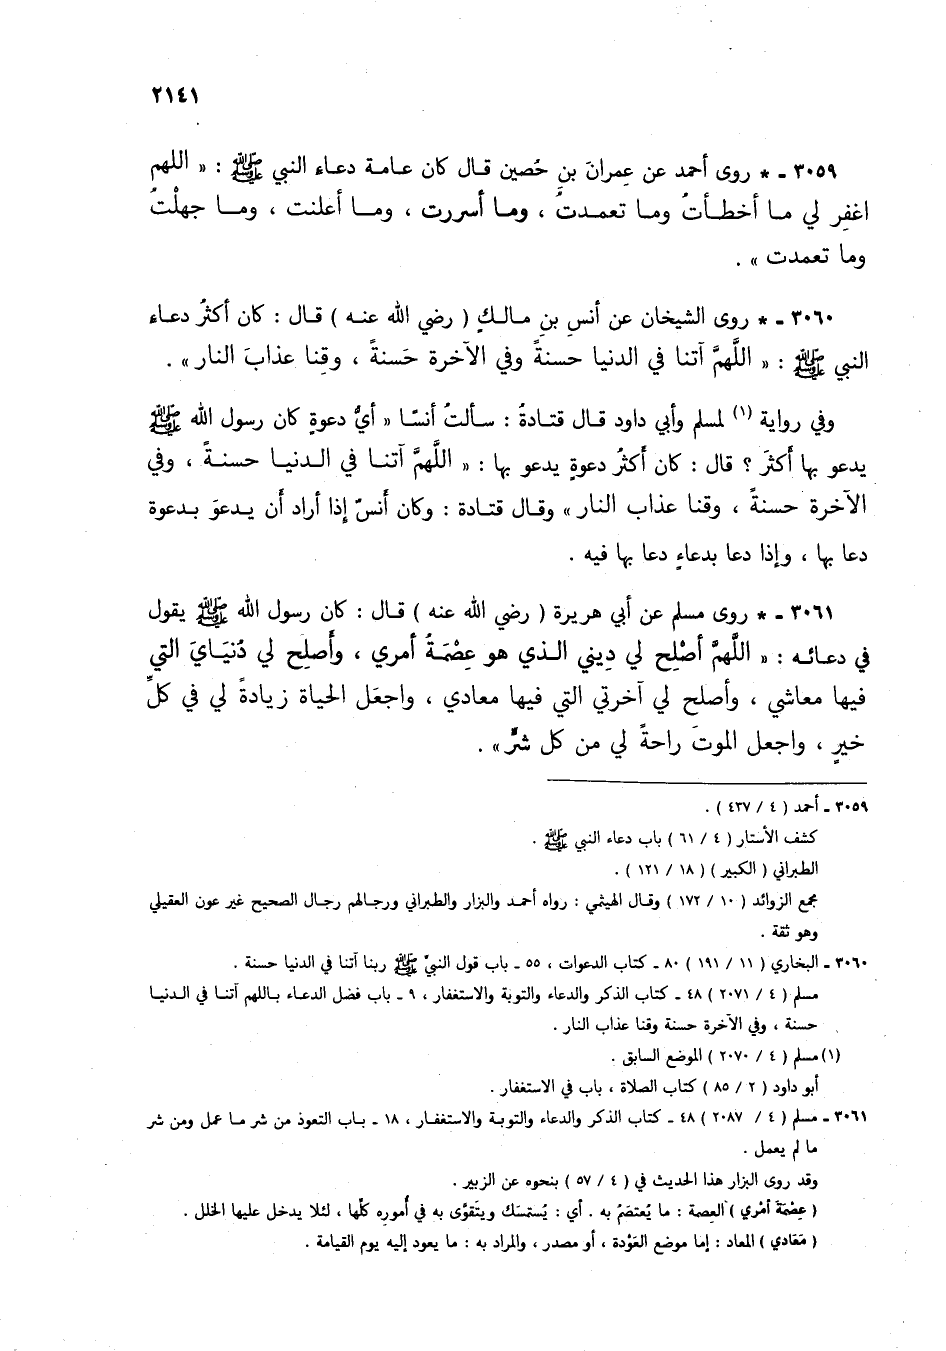 ٢١٤١
٣٠٥٩ ـ * روى أحمد عن عِمرانَ بنِ حُصين قال كان عامة دعاء النبي ﷺ : « اللهم
اغفِر لي ما أخطأتُ وما تعمدتُ ، وما أسررت ، وما أعلنت ، وما جهلْتُ
وما تعمدت » .
٣٠٦٠ ـ * روى الشيخان عن أنسِ بنِ مالكٍ ( رضي الله عنه ) قال : كان أكثرُ دعاء
النبي ﷺ : « اللَّهمَّ آتنا في الدنيا حسنةً وفي الآخرة حَسنةً ، وقِنا عذابَ النار » .
وفي رواية (١) لمسلم وأبي داود قال قتادةُ : سألتُ أنسًا « أيُّ دعوةٍ كان رسول الله ﷺ
يدعو بها أكثَرَ ؟ قال : كان أكثرُ دعوةٍ يدعو بها : « اللَّهمَّ آتنا في الدنيا حسنةً ، وفي
الآخرة حسنةً ، وقنا عذاب النار » وقال قتادة : وكان أنسٌ إذا أراد أن يدعوَ بدعوة
دعا بها ، وإذا دعا بدعاءٍ دعا بها فيه .
٣٠٦١ ـ * روى مسلم عن أبي هريرة ( رضي الله عنه ) قال : كان رسول الله ﷺ يقول
في دعائه : « اللَّهمَّ أصْلِح لي دِيني الذي هو عِصْمَةُ أمري ، وأصلِح لي دُنيَايَ التي
فيها معاشي ، وأصلح لي آخرتي التي فيها معادي ، واجعَل الحياة زيادةً لي في كلِّ
خيرٍ ، واجعل الموتَ راحةً لي من كل شرٍّ » .
٣٠٥٩ ـ أحمد ( ٤ / ٤٣٧ ) .
كشف الأستار ( ٤ / ٦١ ) باب دعاء النبي ﷺ .
الطبراني ( الكبير ) ( ١٨ / ١٢١ ) .
مجمع الزوائد ( ١٠ / ١٧٢ ) وقال الهيثمي : رواه أحمد والبزار والطبراني ورجالهم رجال الصحيح غير عون العقيلي
وهو ثقة .
٣٠٦٠ ـ البخاري ( ١١ / ١٩١ ) ٨٠ ـ كتاب الدعوات ، ٥٥ ـ باب قول النبيّ ﷺ ربنا آتنا في الدنيا حسنة .
مسلم ( ٤ / ٢٠٧١ ) ٤٨ ـ كتاب الذكر والدعاء والتوبة والاستغفار ، ٩ ـ باب فضل الدعاء باللهم آتنا في الدنيا
حسنة ، وفي الآخرة حسنة وقنا عذاب النار .
(١) مسلم ( ٤ / ٢٠٧٠ ) الموضع السابق .
أبو داود ( ٢ / ٨٥ ) كتاب الصلاة ، باب في الاستغفار .
٣٠٦١ ـ مسلم ( ٤ / ٢٠٨٧ ) ٤٨ ـ كتاب الذكر والدعاء والتوبة والاستغفار ، ١٨ ـ باب التعوذ من شر ما عمل ومن شر
ما لم يعمل .
وقد روى البزار هذا الحديث في ( ٤ / ٥٧ ) بنحوه عن الزبير .
( عِصْمَة أمْري ) العصمة : ما يُعتصَمُ به . أي : يُستمسَك ويتقوَّى به في أُموره كلِّها ، لئلا يدخل عليها الخلل .
( مَعَادي ) المعاد : إما موضع العَوْدة ، أو مصدر ، والمراد به : ما يعود إليه يوم القيامة .